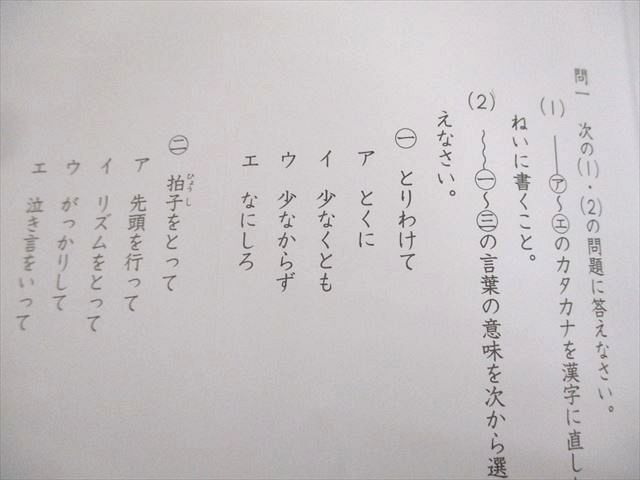 問一 次の(1)・(2)の問題に答えなさい。
(1) ――㋐～㋓のカタカナを漢字に直し
ねいに書くこと。
(2) ～～㊀～㊂の言葉の意味を次から選
えなさい。
㊀ とりわけて
ア とくに
イ 少なくとも
ウ 少なからず
エ なにしろ
㊁ 拍子をとって
ひょうし
ア 先頭を行って
イ リズムをとって
ウ がっかりして
エ 泣き言をいって